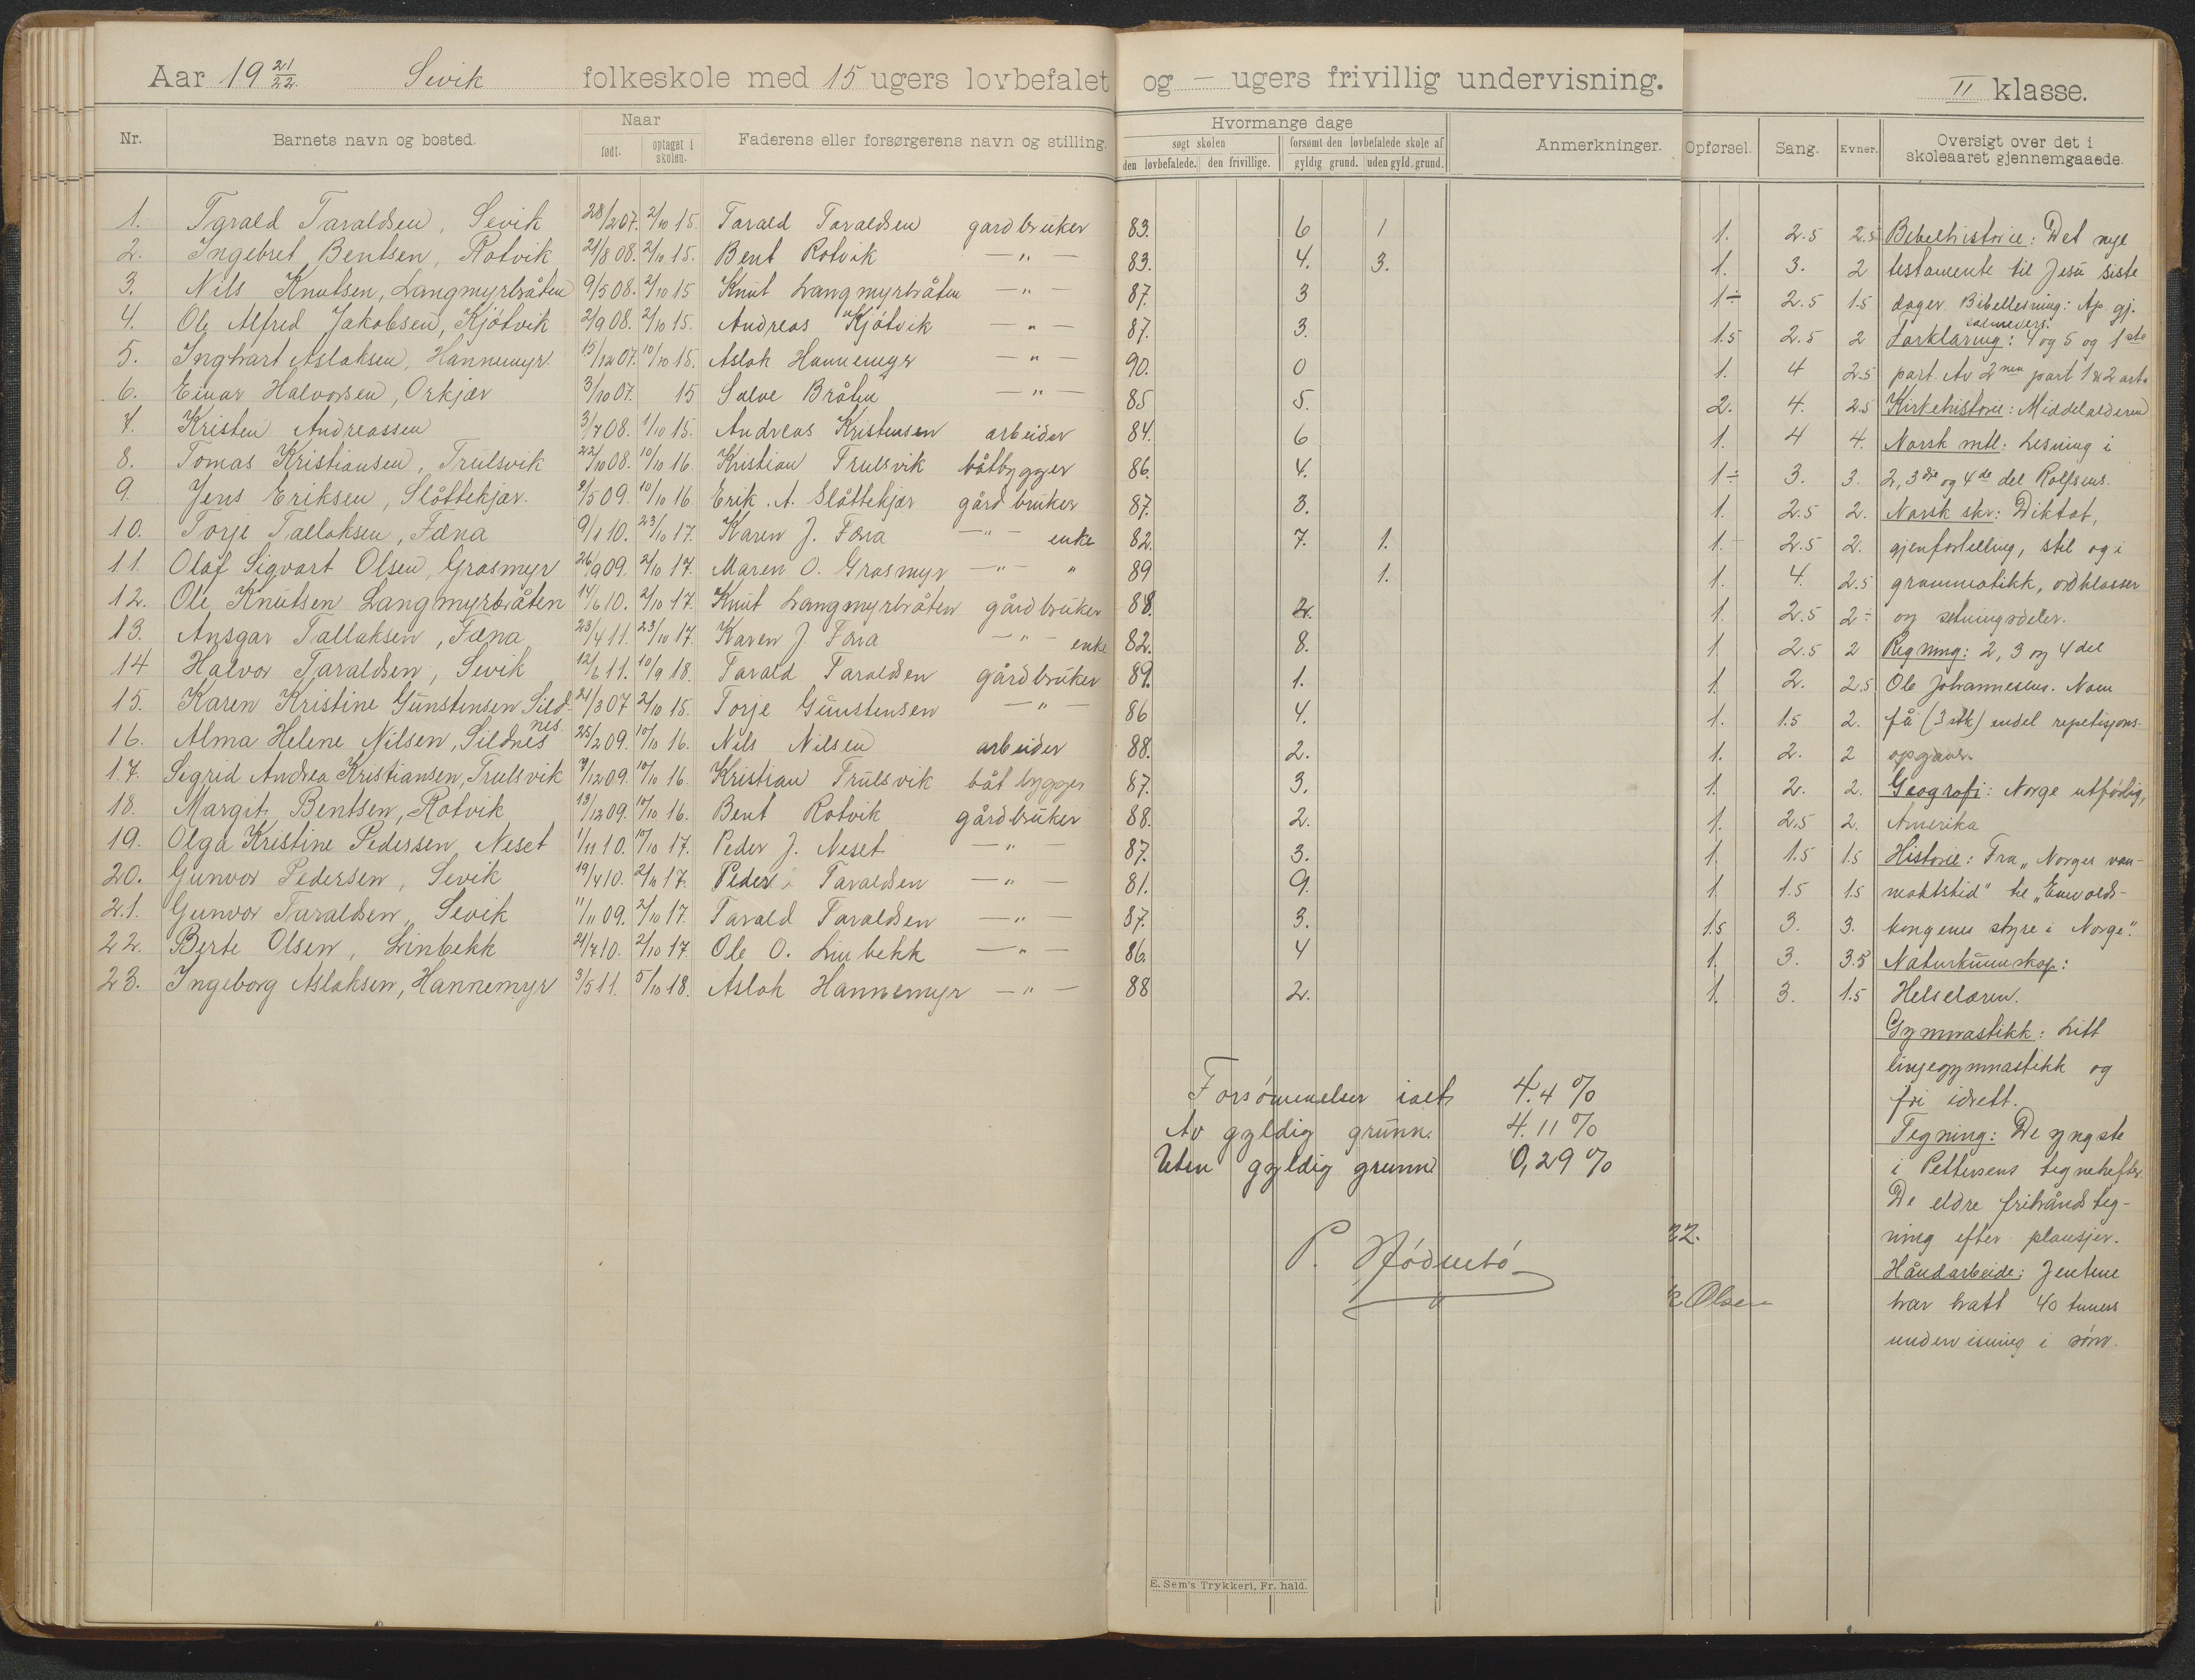 Aar 19 21/22. Sevik folkeskole med 15 ugers lovbefalet og — ugers frivillig undervisning. II klasse.
Nr. Barnets navn og bosted. Naar født. optaget i skolen. Faderens eller forsørgerens navn og stilling. Hvormange dage søgt skolen den lovbefalede. den frivillige. forsømt den lovbefalede skole af gyldig grund. uden gyld. grund. Anmerkninger. Opførsel. Sang. Evner. Oversigt over det i skoleaaret gjennemgaaede.
1. Tarald Taraldsen, Sevik 28/2 07. 2/10 15. Tarald Taraldsen gardbruker 83. 6 1 1. 2.5 2.5 Bibelhistorie: Det nye
2. Ingebret Bentsen, Rotvik 21/8 08. 2/10 15. Bent Rotvik —"— 83. 4. 3. 1. 3. 2 testamente til Jesu siste
3. Nils Knutsen, Langmyrbråten 9/5 08. 2/10 15 Knut Langmyrbråten —"— 87. 3 1÷ 2.5 1.5 dager. Bibellesning: Ap. gj.
salmevers.
4. Ole Alfred Jakobsen, Kjøtvik 2/9 08. 2/10 15. Andreas Kjøtvik —"— 87. 3. 1.5 2.5 2 Forklaring: 4 og 5 og 1ste
5. Ingvart Aslaksen, Hannemyr. 15/12 07. 10/10 15. Aslak Hannemyr —"— 90. 0 1. 4 2.5 part. Av 2nen part 1 & 2 art.
6. Einar Halvorsen, Orkjær 3/10 07. 15 Salve Bråten —"— 85 5. 2. 4. 2.5 Kirkehistorie: Middelalderen
7. Kristen Andreassen 3/7 08. 1/10 15. Andreas Kristensen arbeider 84. 6 1. 4 4. Norsk mtl: Lesning i
8. Tomas Kristiansen, Trulsvik 22/10 08. 10/10 16. Kristian Trulsvik båtbygger 86. 4. 1÷ 3. 3. 2, 3dje og 4de del Rolfsens.
9. Jens Eriksen, Slåttekjær. 9/5 09. 10/10 16 Erik. A. Slåttekjær gårdbruker 87. 3. 1. 2.5 2. Norsk skr: Diktat,
10. Torje Tallaksen, Fæna 9/1 10. 23/10 17. Karen J. Fæna —"— enke 82. 7. 1. 1. 2.5 2. gjenfortelling, stil og i
11. Olaf Sigvart Olsen, Grasmyr 26/9 09. 2/10 17. Maren O. Grasmyr —"— " 89 1. 1. 4. 2.5 grammatikk, ordklasser
12. Ole Knutsen Langmyrbråten 14/6 10. 2/10 17. Knut Langmyrbråten gårdbruker 88. 2. 1. 2.5 2÷ og setningsdeler.
13. Ansgar Tallaksen, Fæna 23/4 11. 23/10 17. Karen J. Fæna —"— enke 82. 8. 1 2.5 2 Regning: 2, 3 og 4 del
14 Halvor Taraldsen, Sevik 12/6 11. 10/9 18. Tarald Taraldsen gårdbruker 89. 1. 1. 2. 2.5 Ole Johannesens. Noen
15. Karen Kristine Gunstensen Sildnes 21/3 07 2/10 15. Torje Gunstensen —"— 86 4. 1. 1.5 2. få (3 stk) endel repetisjons-
16. Alma Helene Nilsen, Sildnes 25/2 09. 10/10 16. Nils Nilsen arbeider 88. 2. 1. 2. 2 opgaver.
17. Sigrid Andrea Kristiansen, Trulsvik 9/12 09. 10/10 16. Kristian Trulsvik båtbygger 87. 3. 1. 2. 2. Geografi: Norge utførlig,
18. Margit Bentsen, Rotvik 13/12 09. 10/10 16. Bent Rotvik gårdbruker 88. 2. 1. 2.5 2. Amerika
19. Olga Kristine Pedersen, Neset 1/11 10. 10/10 17. Peder J. Neset —"— 87. 3. 1. 1.5 1.5 Historie: Fra "Norges van-
20. Gunvor Pedersen, Sevik 19/4 10. 2/10 17. Peder Taraldsen —"— 81. 9. 1 1.5 1.5 maktstid" til "Enevolds-
21. Gunvor Taraldsen, Sevik 11/11 09. 2/10 17. Tarald Taraldsen —"— 87. 3. 1.5 3. 3. kongenes styre i Norge".
22. Berte Olsen, Linbekk 21/7 10. 2/10 17. Ole O. Linbekk —"— 86. 4 1. 3. 3.5 Naturkunnskap:
23. Ingeborg Aslaksen, Hannemyr 3/5 11. 5/10 18. Aslak Hannemyr —"— 88 2. 1. 3. 1.5 Helselæren.
Gymnastikk: Litt
linjegymnastikk og
fri idrett.
Tegning: De yngste
i Pettersens tegnehefter.
De eldre frihåndsteg-
ning efter plansjer.
Håndarbeide: Jentene
har hatt 40 timers
undervisning i søm.
Forsømmelser ialt 4.4 %
Av gyldig grunn. 4.11 %
Uten gyldig grunn 0,29 %
22.
Olsen
E. Sem's Trykkeri, Fr. hald.